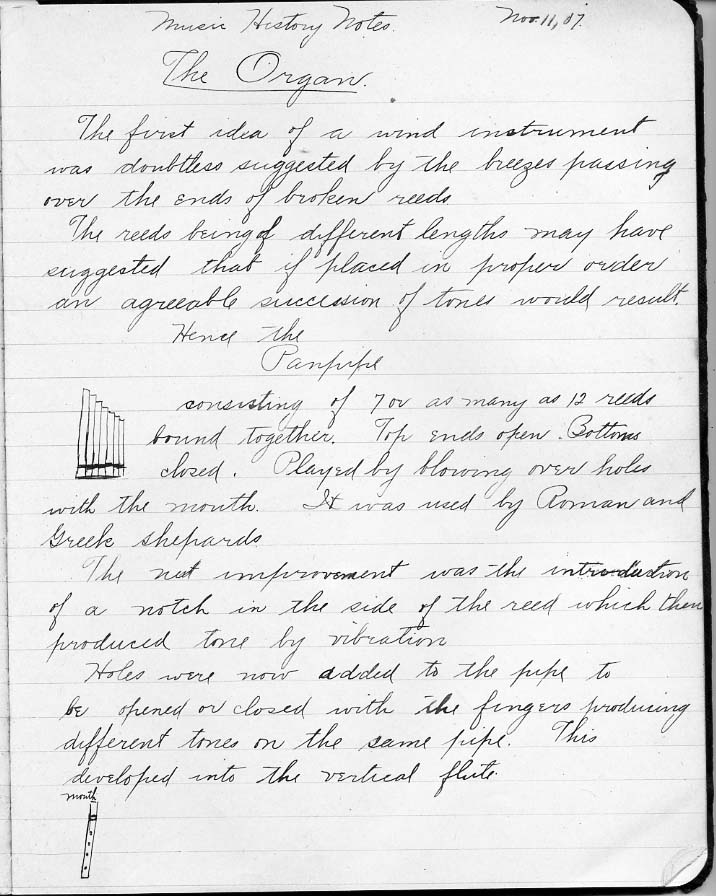 Music History Notes. Nov. 11, 07.
The Organ.
The first idea of a wind instrument
was doubtless suggested by the breezes passing
over the ends of broken reeds
The reeds being of different lengths may have
suggested that if placed in proper order
an agreeable succession of tones would result.
Hence the
Panpipe
consisting of 7 or as many as 12 reeds
bound together. Top ends open. Bottoms
closed. Played by blowing over holes
with the mouth. It was used by Roman and
Greek shepards
The next improvement was the introduction
of a notch in the side of the reed which then
produced tone by vibration
Holes were now added to the pipe to
be opened or closed with the fingers producing
different tones on the same pipe. This
developed into the vertical flute.
mouth